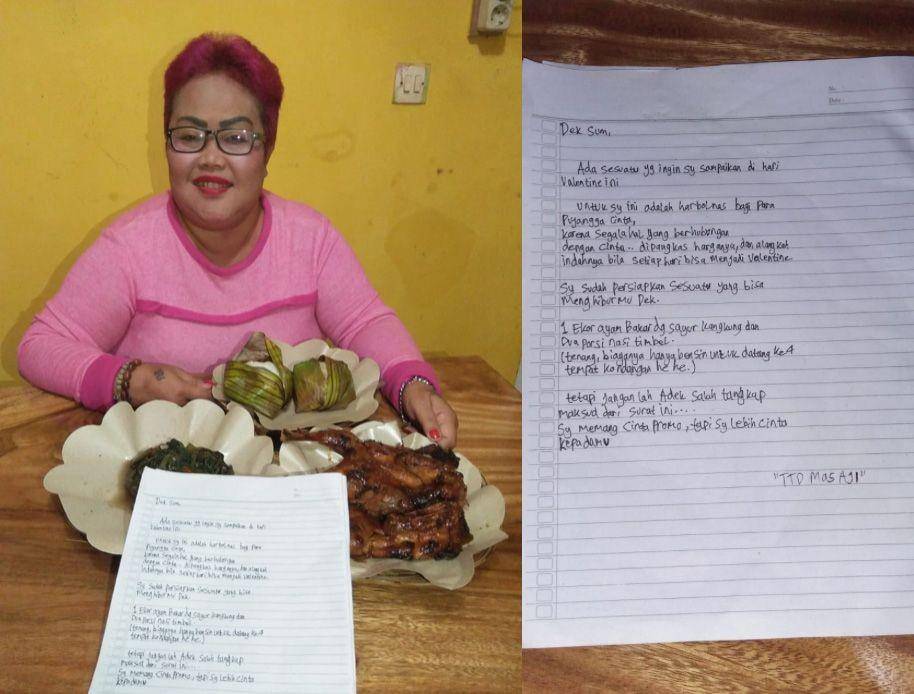 Dek Sum,
Ada sesuatu yg ingin sy sampaikan di hari
Valentine ini
untuk sy ini adalah harbolnas bagi para
Pujangga cinta,
karena segala hal yang berhubungan
dengan cinta.. dipangkas harganya, dan alangkah
indahnya bila setiap hari bisa menjadi valentine.
Sy sudah persiapkan sesuatu yang bisa
menghiburmu Dek.
1 Ekor ayam Bakar dg sayur kangkung dan
Dua porsi nasi timbel.
(tenang, biayanya hanya bensin untuk datang ke4
tempat kondangan he he.)
tetapi jangan lah Adek salah tangkap
maksud dari surat ini.....
Sy memang cinta promo, tapi sy lebih cinta
kepadamu
No.
Date :
Dek Sum,
Ada sesuatu yg ingin sy sampaikan di hari
Valentine ini
untuk sy ini adalah harbolnas bagi para
Pujangga cinta,
karena segala hal yang berhubungan
dengan cinta.. dipangkas harganya, dan alangkah
indahnya bila setiap hari bisa menjadi valentine.
Sy sudah persiapkan sesuatu yang bisa
menghiburmu Dek.
1 Ekor ayam Bakar dg sayur kangkung dan
Dua porsi nasi timbel.
(tenang, biayanya hanya bensin untuk datang ke4
tempat kondangan he he.)
tetapi jangan lah Adek salah tangkap
maksud dari surat ini.....
Sy memang cinta promo, tapi sy lebih cinta
kepadamu
"TTD Mas AJI"